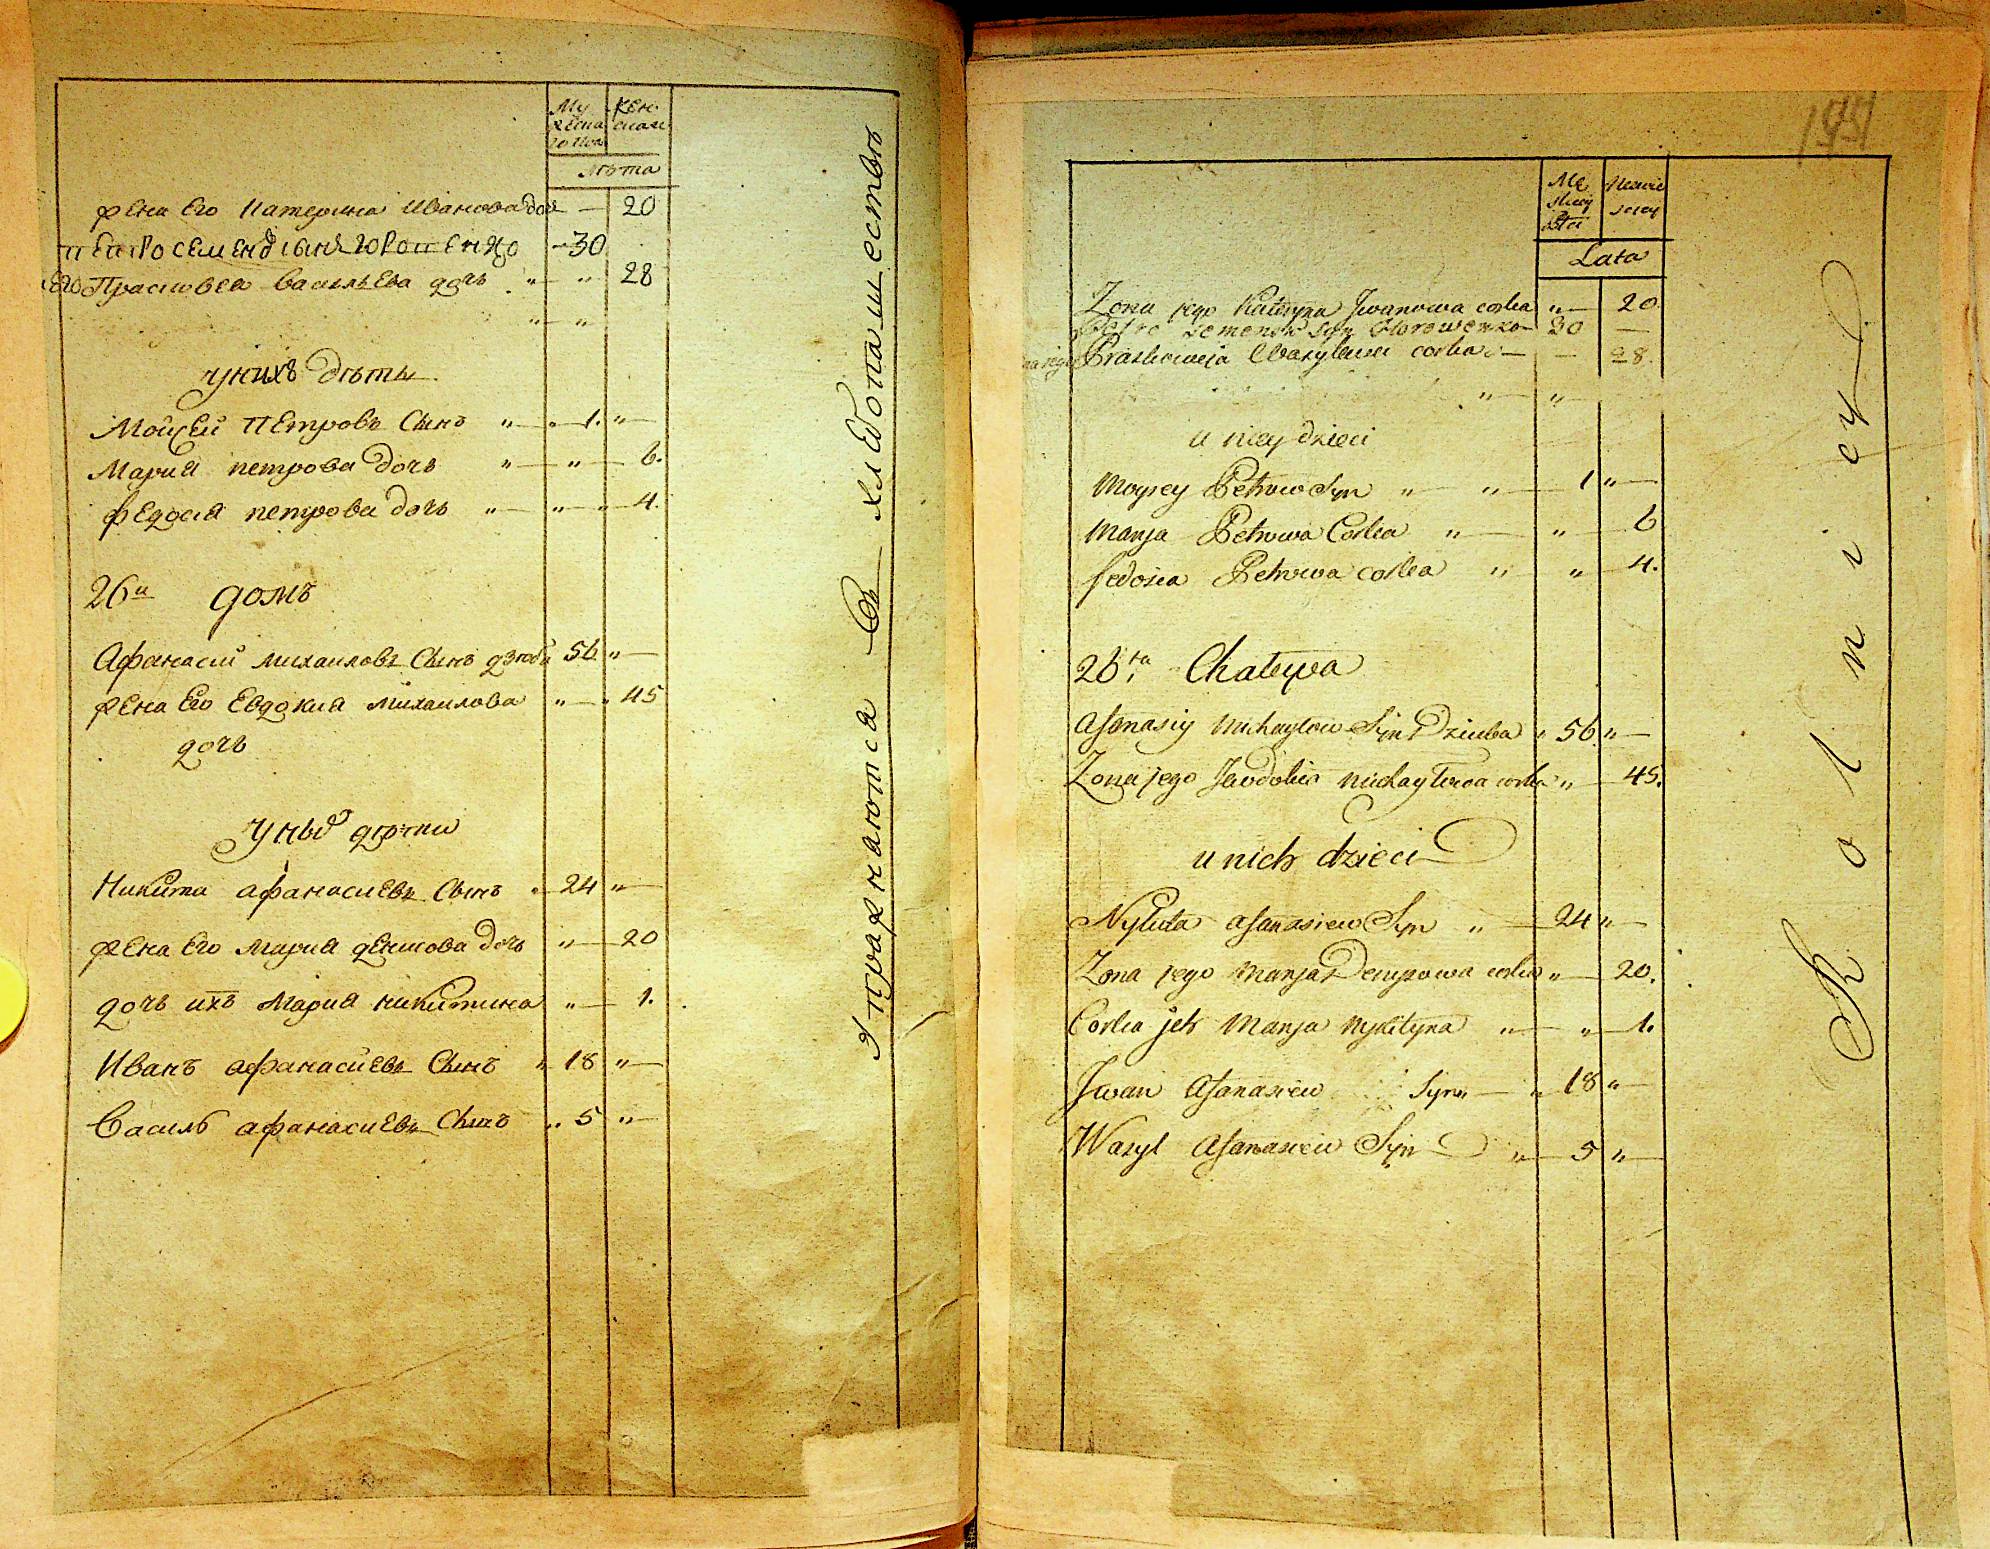 Му
жеска
го пола
жен
скаго
Лѣта
жена Его Катерина Иванова дочь — 20
Петро Семенов сынъ Юрошенко — 30
Его Прасковея Васильева дочь „ — „ 28
„ — „
у нихъ дѣты
Мойсей Петровъ Сынъ „ — „ 1. „ —
Мария петрова дочь „ — „ — 6.
Федосия петрова дочь „ — „ — 4.
26й домъ
Афанасий михаиловъ Сынъ дзюба 56 „ —
жена Его Евдокия михаилова „ — „ 45
дочь
у ныхъ дѣти
Никита афанасиевъ Сынъ „ 24 „ —
жена Его Мария демкова дочь „ — 20
дочь ихъ Мария никитина „ — 1.
Иванъ афанасиевъ Сынъ „ 18 „ —
Василь афанасиевъ Сынъ „ 5 „ —
Упражнаются въ хлѣбопашествѣ
Lata
Zona jego Kateryna Jwanowa corka „ — 20
Petro Semenow Syn — 30 —
Praskoweja Wasylewa corka — — 28.
„ — „
u nich dzieci
Moysey Petrow Syn „ — „ — 1 „ —
Marija Petrowa Corka „ — „ — 6
fedosia Petrowa corka „ „ — 4.
26ta Chatupa
Afanasiy Michayłow Syn Dziuba „ 56 „ —
Zona jego Jewdokia Michayłowa corka „ — 45.
u nich dzieci
Nykita Afanasiew Syn „ — 24 „ —
Zona jego Marija Demkowa corka „ — 20.
Corka jch Marija Nykityna „ — „ — 1.
Jwan Afanasiew Syn „ — „ 18 „ —
Wasyl Afanasiew Syn „ — 5 „ —
Rolnicy